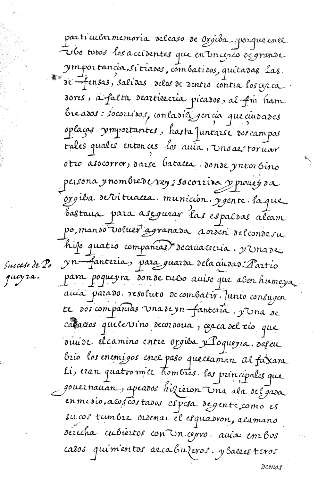 particular memoria del caso de Orgiba, porque en el
ubo todos los accidentes que en un cerco de grande
ymportançia, sitiados, combatidos, quitadas las
defensas, salidas delos de dentro contra los çerca
dores, a falta de artilleria picados, al fin ham
breados: socorridos, con la diligençia que çiudades
o plaças ymportantes, hasta juntarse dos campos
tales quales entonçes los auia, uno a estoruar
otro a socorrer, darse batalla. donde ynteruino
persona y nombre de rey: socorrida y proueyda
Orgiba, de vituallas, muniçion, y gente. la que
bastaua para asegurar las espaldas al cam
po, mando voluer a granada a orden del conde su
hijo quatro compañias de caualleria, y una de
ynfanteria, para guarda dela çiudad. Partio
Suceso de Po
queyra.
para poqueyra donde tubo auiso que aben humeya
auia parado, resoluto de combatir. Junto con su gen
te dos compañias una de ynfanteria, y una de
cauallos que le vino de cordoua, çerca del rio que
diuide el camino entre orgiba y Poqueyra, descu
brio los enemigos en el paso que llaman Alfaxara
li, eran quatro mill hombres. los prinçipales que
gouernauan, apeados hizieron una ala delgada
en medio, a los costados espesa de gente, como es
su costumbre ordenar el esquadron, a la mano
derecha cubiertos con un çerro, auia embos
cados quinientos arcabuzeros, y ballesteros
demas